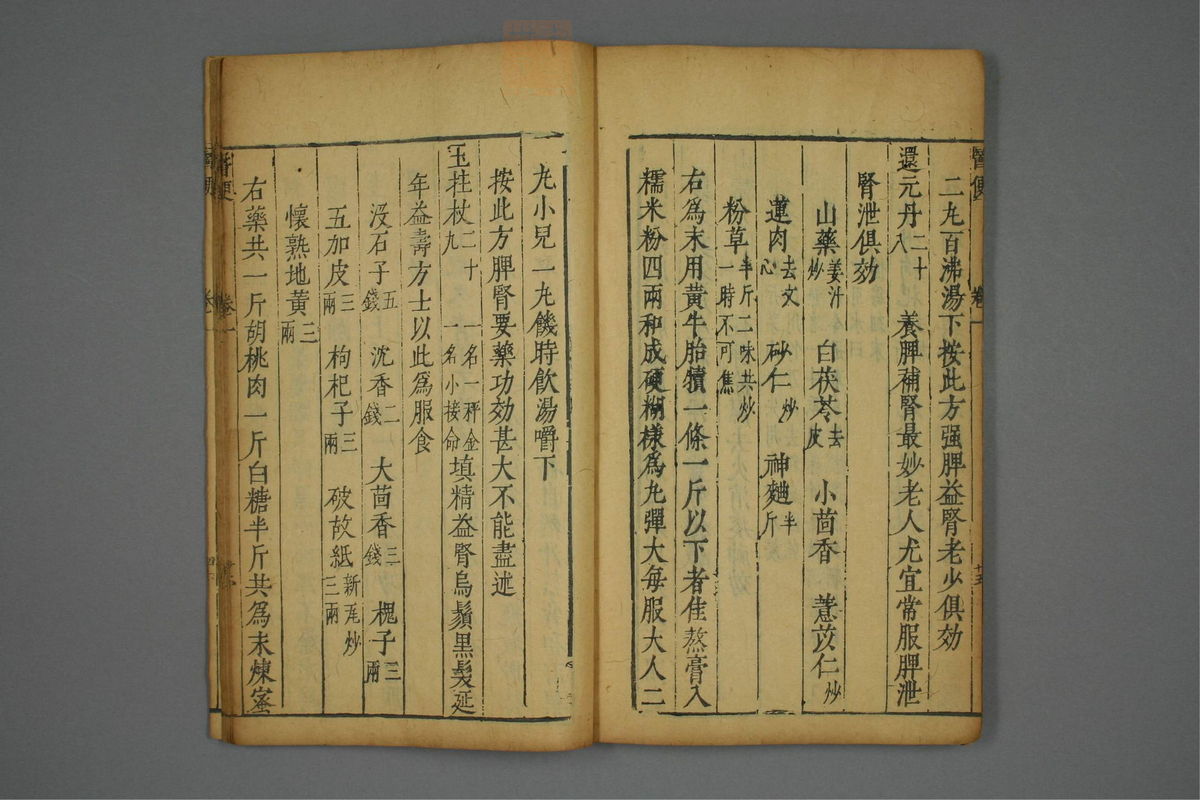 二丸百沸湯下按此方强脾益腎老少俱効
還元丹二十八 養脾補腎最妙老人尤宜常服脾泄
腎泄俱効
山藥姜汁炒 白茯苓去皮 小茴香 薏苡仁炒
蓮肉去文心 砂仁炒 神麯半斤
粉草半斤二味共炒一時不可焦
右為末用黃牛胎犢一條一斤以下者佳熬膏入
糯米粉四兩和成硬糊樣為丸彈大每服大人二
丸小兒一丸饑時飲湯嚼下
按此方脾腎要藥功効甚大不能盡述
玉柱杖二十九 一名一秤金一名小接命 填精益腎烏鬚黑髮延
年益壽方士以此為服食
沒石子五錢 沈香二錢 大茴香三錢 槐子三兩
五加皮三兩 枸杞子三兩 破故紙新瓦炒三兩
懷熟地黃三兩
右藥共一斤胡桃肉一斤白糖半斤共為末煉蜜
卷一
十五
卷一